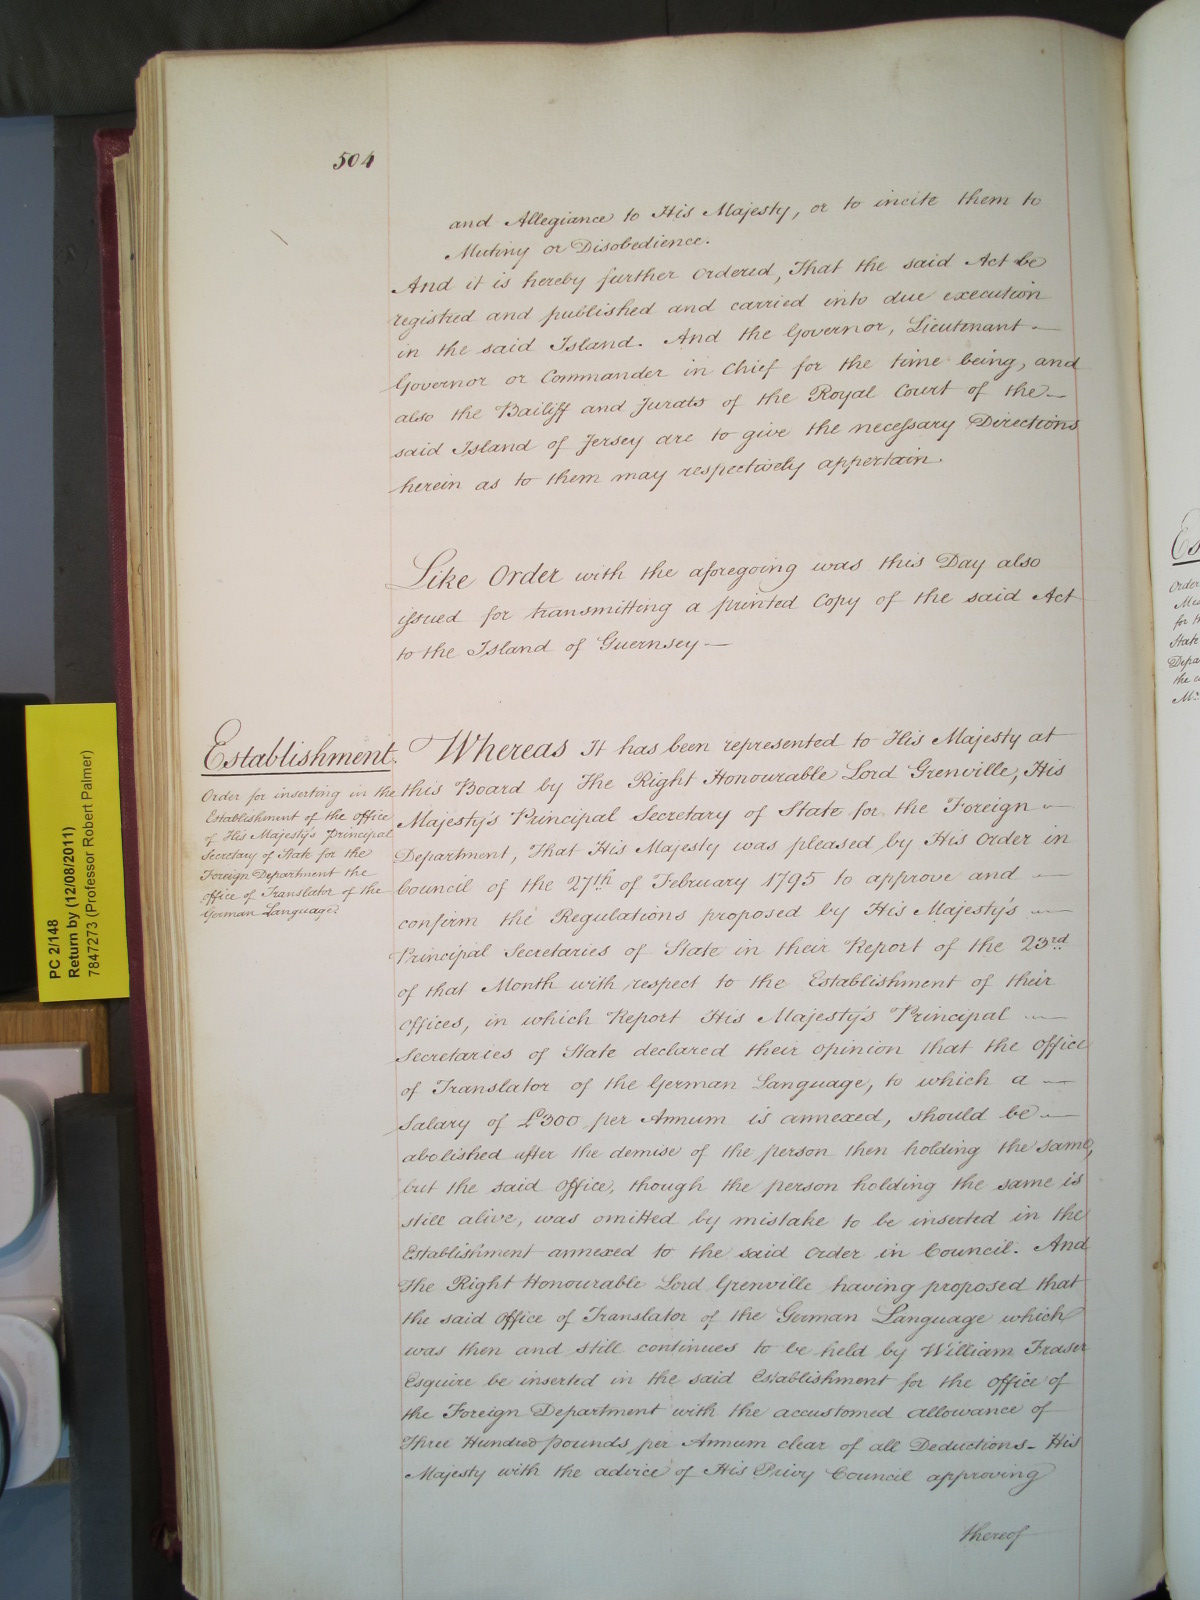 504
and Allegiance to His Majesty, or to incite them to
Mutiny or Disobedience.
And it is hereby further Ordered, That the said Act be
registred and published and carried into due execution
in the said Island. And the Governor, Lieutenant —
Governor or Commander in Chief for the time being, and
also the Bailiff and Jurats of the Royal Court of the —
said Island of Jersey are to give the necessary Directions
herein as to them may respectively appertain.
Like Order with the aforegoing was this Day also
issued for transmitting a printed Copy of the said Act
to the Island of Guernsey —
Establishment.
Order for inserting in the
Establishment of the Office
of His Majesty's Principal
Secretary of State for the
Foreign Department the
Office of Translator of the
German Language.
Whereas It has been represented to His Majesty at
this Board by The Right Honourable Lord Grenville, His
Majesty's Principal Secretary of State for the Foreign —
Department, That His Majesty was pleased by His Order in
Council of the 27th of February 1795 to approve and —
confirm the Regulations proposed by His Majesty's —
Principal Secretaries of State in their Report of the 23rd
of that Month with respect to the Establishment of their
Offices, in which Report His Majesty's Principal —
Secretaries of State declared their opinion that the Office
of Translator of the German Language, to which a —
Salary of £300 per Annum is annexed, should be —
abolished after the demise of the person then holding the same,
but the said Office, though the person holding the same is
still alive, was omitted by mistake to be inserted in the
Establishment annexed to the said Order in Council. And
The Right Honourable Lord Grenville having proposed that
the said Office of Translator of the German Language which
was then and still continues to be held by William Fraser
Esquire be inserted in the said Establishment for the Office of
the Foreign Department with the accustomed allowance of
Three Hundred pounds per Annum clear of all Deductions — His
Majesty with the advice of His Privy Council approving
thereof
PC 2/148
Return by (12/08/2011)
7847273 (Professor Robert Palmer)